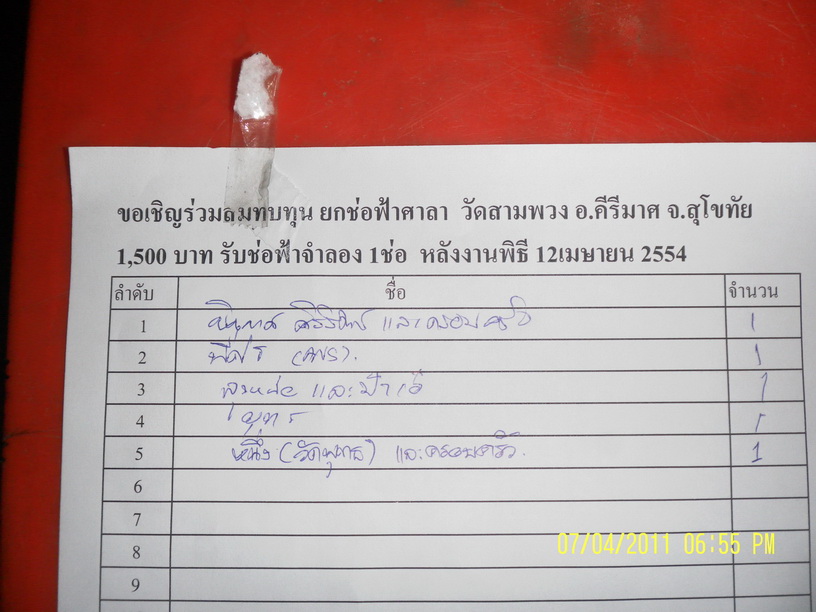 ขอเชิญร่วมสมทบทุน ยกช่อฟ้าศาลา วัดสามพวง อ.คีรีมาศ จ.สุโขทัย
1,500 บาท รับช่อฟ้าจำลอง 1ช่อ หลังงานพิธี 12เมษายน 2554
ลำดับ ชื่อ จำนวน
1 และครอบครัว 1
2 1
3 และป้า 1
4 1
5 หนึ่ง (วัด) และครอบครัว. 1
6
7
8
9
07/04/2011 06:55 PM